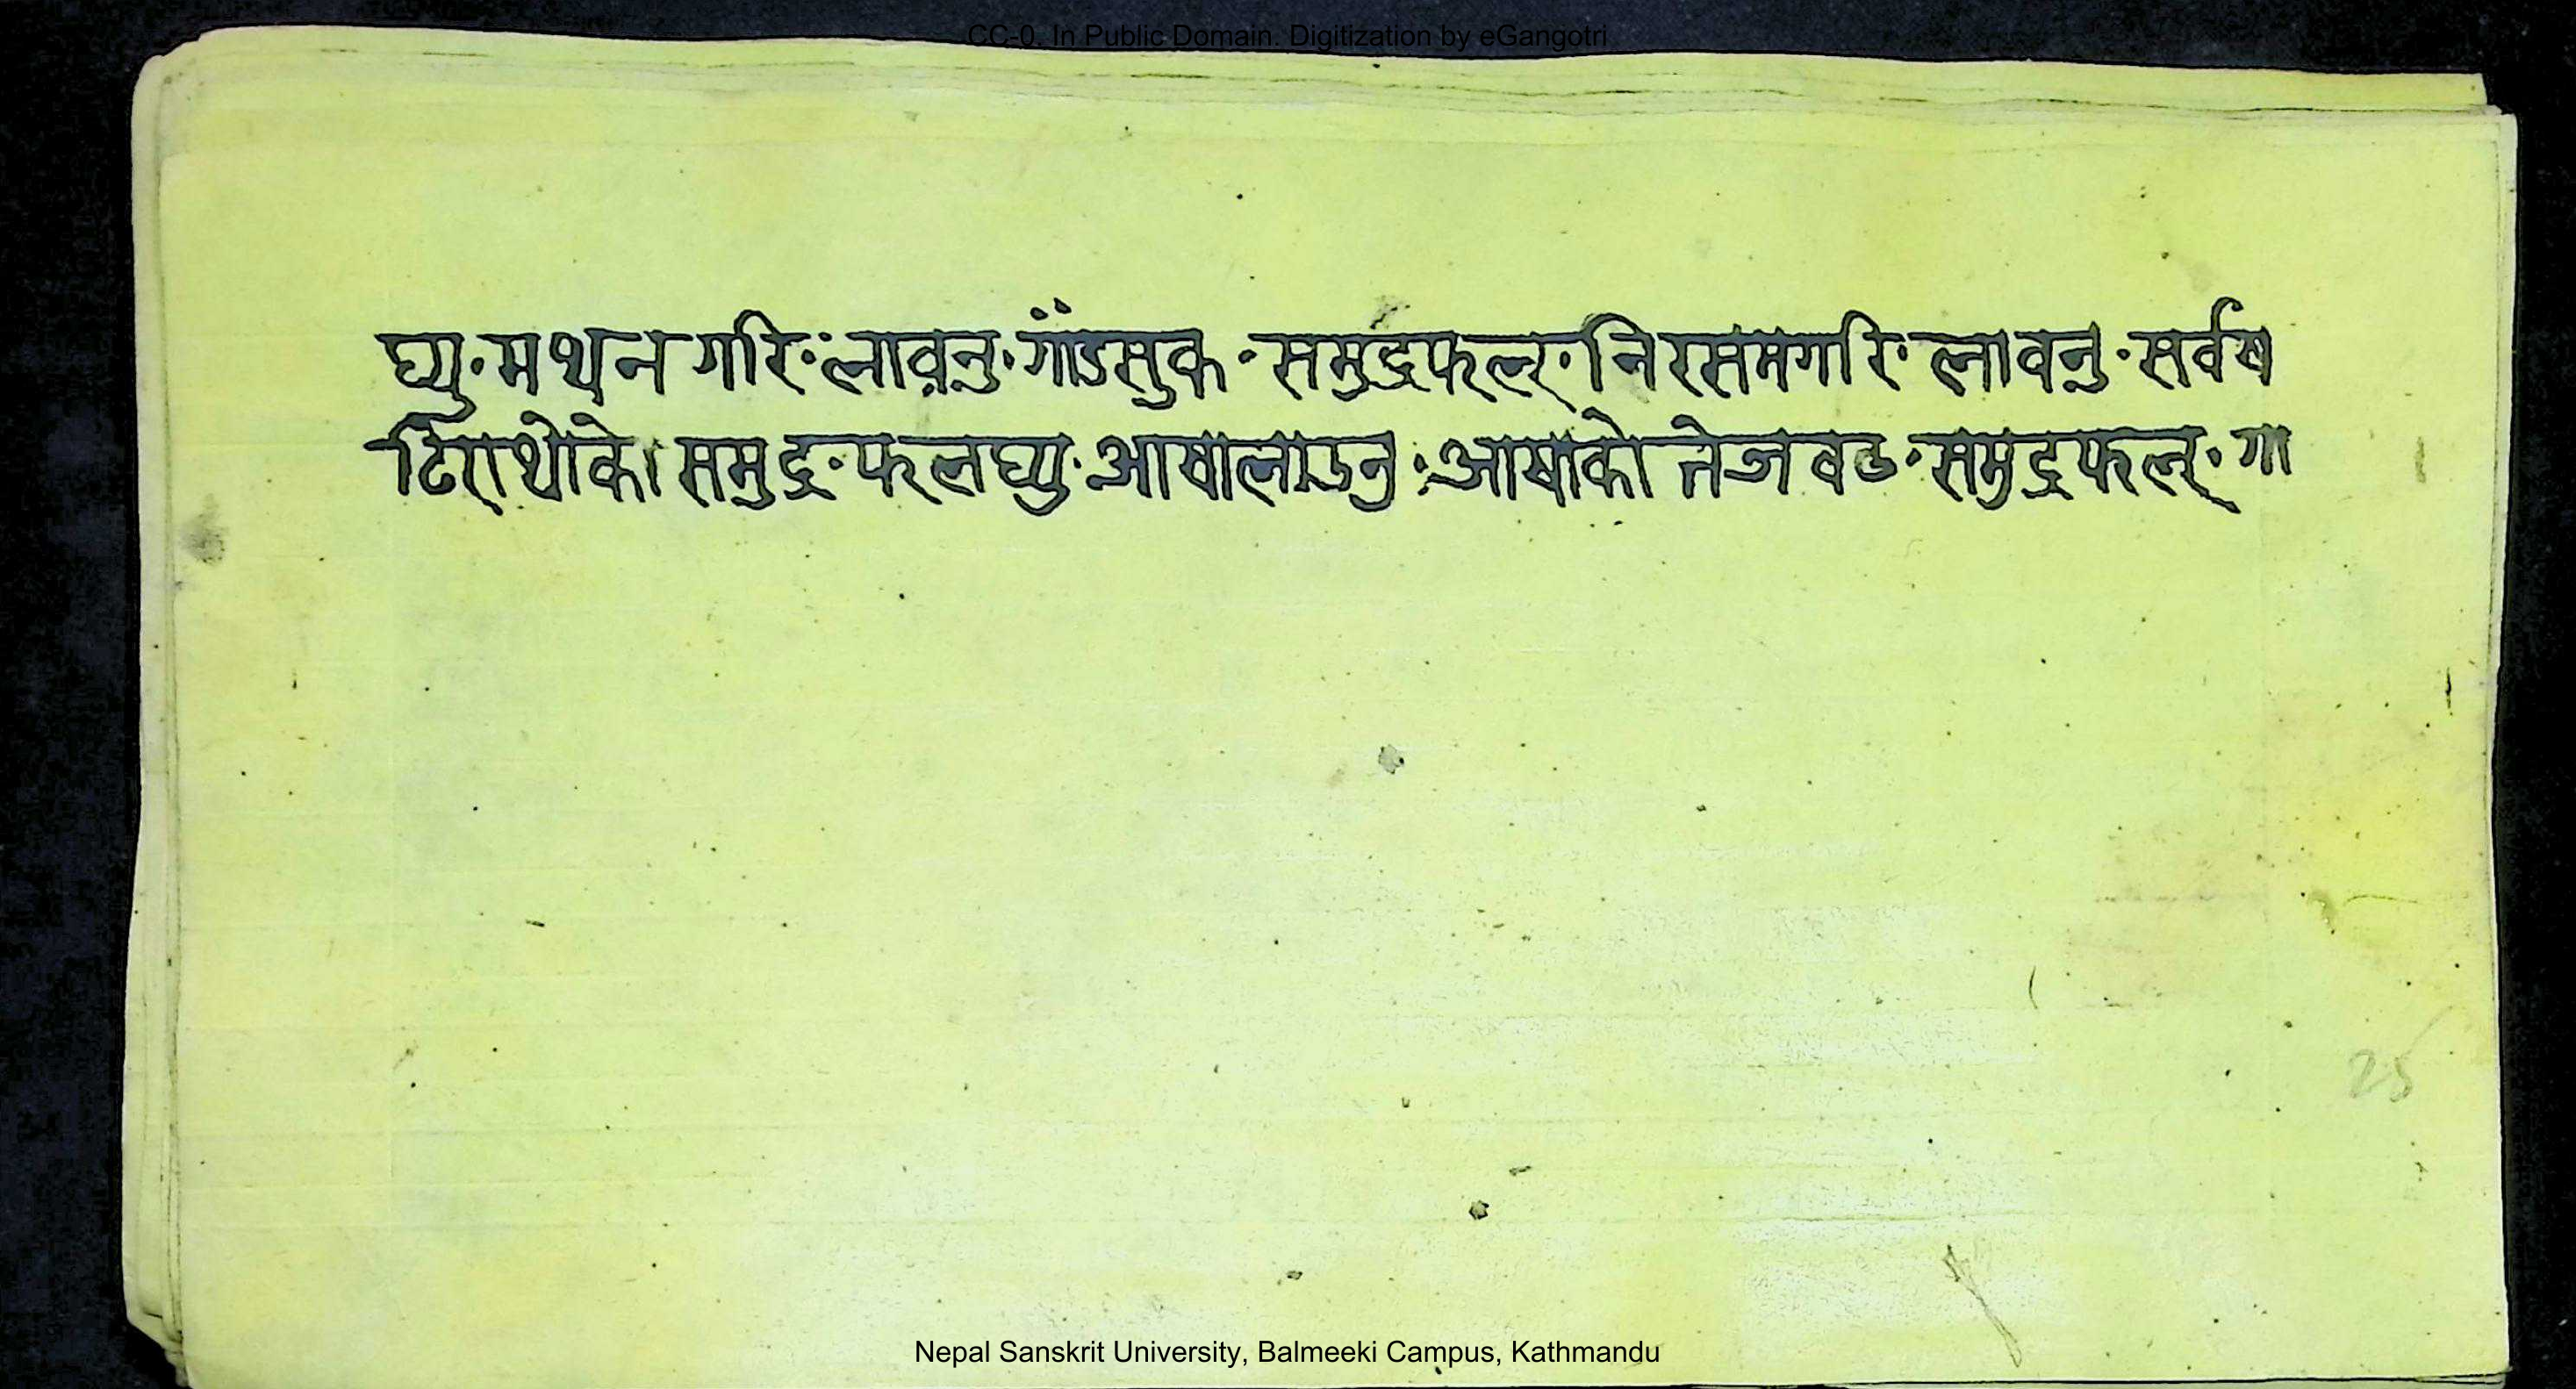 CC-0. In Public Domain. Digitization by eGangotri
घ्यु·मथन गरि·लावनु·गाँडसुक·समुद्रफल्·निरसमगरि·लावनु·सर्वष
टिराथोके। समुद्र·फलघ्यु·आषालाउनु·आषाको तेजवढ·समुद्रफल्·गा
25
Nepal Sanskrit University, Balmeeki Campus, Kathmandu